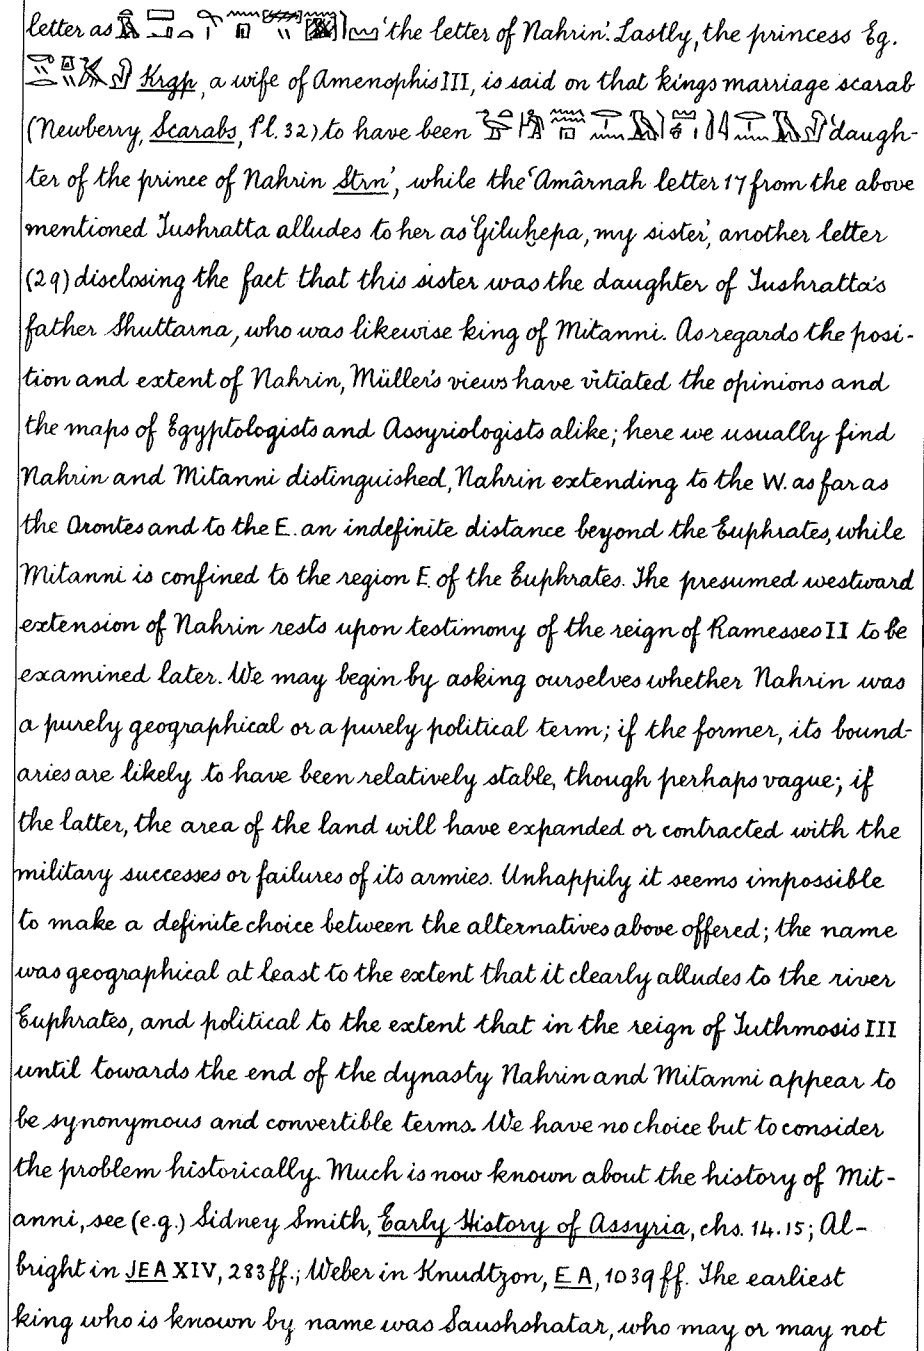 letter as 'the letter of Nahrin'. Lastly, the princess Eg.
Krgp, a wife of Amenophis III, is said on that kings marriage scarab
(Newberry, Scarabs, Pl. 32) to have been 'daugh-
ter of the prince of Nahrin Strn', while the 'Amârnah letter 17 from the above
mentioned Tushratta alludes to her as 'Giluḫepa, my sister', another letter
(29) disclosing the fact that this sister was the daughter of Tushratta's
father Shuttarna, who was likewise king of Mitanni. As regards the posi-
tion and extent of Nahrin, Müller's views have vitiated the opinions and
the maps of Egyptologists and Assyriologists alike; here we usually find
Nahrin and Mitanni distinguished, Nahrin extending to the W. as far as
the Orontes and to the E. an indefinite distance beyond the Euphrates, while
Mitanni is confined to the region E. of the Euphrates. The presumed westward
extension of Nahrin rests upon testimony of the reign of Ramesses II to be
examined later. We may begin by asking ourselves whether Nahrin was
a purely geographical or a purely political term; if the former, its bound-
aries are likely to have been relatively stable, though perhaps vague; if
the latter, the area of the land will have expanded or contracted with the
military successes or failures of its armies. Unhappily it seems impossible
to make a definite choice between the alternatives above offered; the name
was geographical at least to the extent that it clearly alludes to the river
Euphrates, and political to the extent that in the reign of Tuthmosis III
until towards the end of the dynasty Nahrin and Mitanni appear to
be synonymous and convertible terms. We have no choice but to consider
the problem historically. Much is now known about the history of Mit-
anni, see (e.g.) Sidney Smith, Early History of Assyria, chs. 14.15; Al-
bright in JEA XIV, 283 ff.; Weber in Knudtzon, EA, 1039 ff. The earliest
king who is known by name was Saushshatar, who may or may not